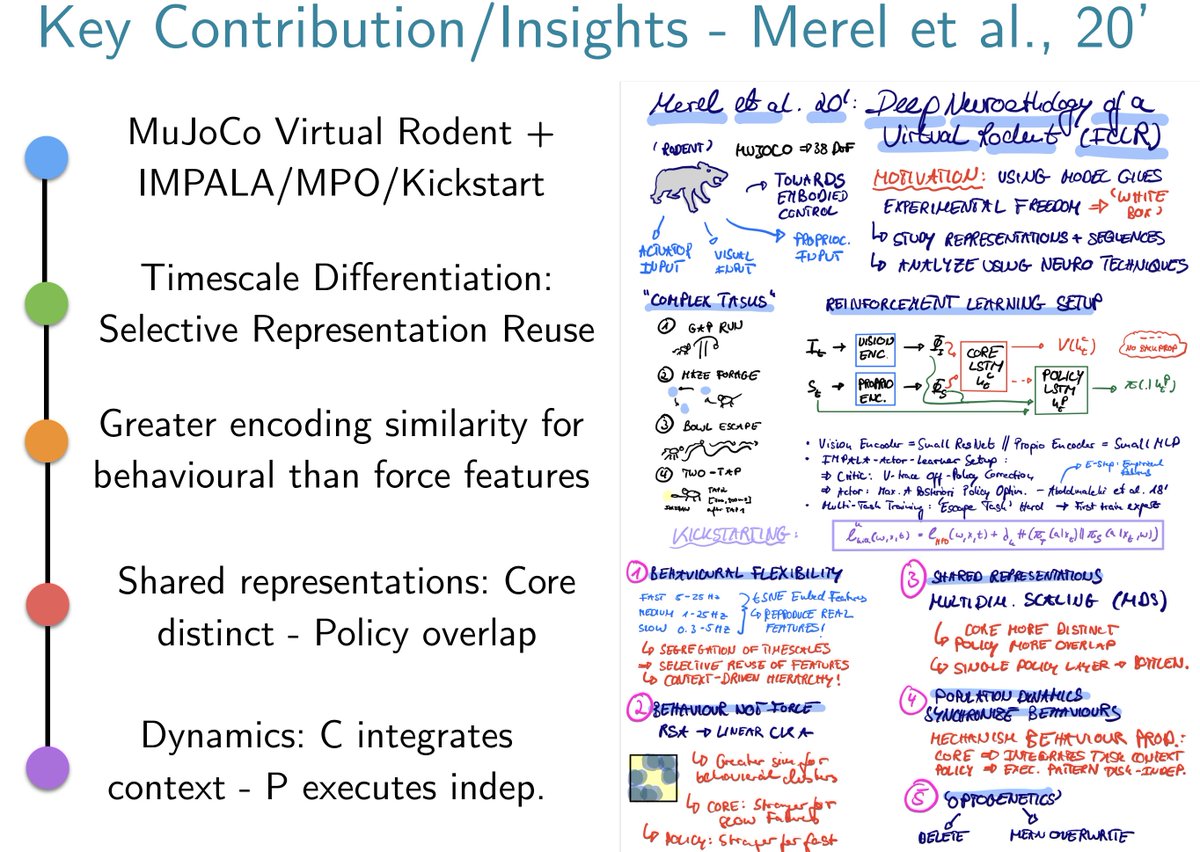 Key Contribution/Insights - Merel et al., 20'
MuJoCo Virtual Rodent +
IMPALA/MPO/Kickstart
Timescale Differentiation:
Selective Representation Reuse
Greater encoding similarity for
behavioural than force features
Shared representations: Core
distinct - Policy overlap
Dynamics: C integrates
context - P executes indep.
Merel et al. 20': Deep Neuroethology of a
Virtual Rodent (ICLR)
(RODENT)
MUJOCO ⇒ 38 DoF
→ TOWARDS
EMBODIED
CONTROL
ACTUATOR
INPUT
VISUAL
INPUT
PROPRIOC.
INPUT
MOTIVATION: USING MODEL GIVES
EXPERIMENTAL FREEDOM ⇒ 'WHITE
BOX'
↳ STUDY REPRESENTATIONS + SEQUENCES
↳ ANALYZE USING NEURO TECHNIQUES
"COMPLEX TASKS"
① GAP RUN
② MAZE FORAGE
③ BOWL ESCAPE
④ TWO-TAP
REINFORCEMENT LEARNING SETUP
VISION
ENC.
PROPRIO
ENC.
CORE
LSTM
POLICY
LSTM
NO BACKPROP
• Vision Encoder = Small ResNet // Proprio Encoder = Small MLP
• IMPALA-Actor-Learner Setup:
⇒ Critic: V-trace Off-Policy Correction
⇒ Actor: Max. A Posteriori Policy Optim. - Abdolmaleki et al. 18'
• Multi-Task Training: 'Escape Task' Hard → First train expert
KICKSTARTING:
① BEHAVIOURAL FLEXIBILITY
FAST 5-25 Hz
MEDIUM 1-25 Hz
SLOW 0.3-5 Hz
tSNE Embed Features
↳ REPRODUCE REAL
FEATURES!
↳ SEGREGATION OF TIMESCALES
⇒ SELECTIVE REUSE OF FEATURES
↳ CONTEXT-DRIVEN HIERARCHY!
② BEHAVIOUR NOT FORCE
RSA → LINEAR CKA
↳ Greater sim for
behavioral clusters
↳ CORE: Stronger for
slow Features
↳ POLICY: Stronger for fast
③ SHARED REPRESENTATIONS
MULTIDIM. SCALING (MDS)
↳ CORE MORE DISTINCT
POLICY MORE OVERLAP
↳ SINGLE POLICY LAYER → BOTTLEN.
④ POPULATION DYNAMICS
SYNCHRONIZE BEHAVIOURS
MECHANISM BEHAVIOUR PROD.:
CORE ⇒ INTEGRATES TASK CONTEXT
POLICY ⇒ EXEC. PATTERN TASK-INDEP.
⑤ 'OPTOGENETICS'
DELETE
MEAN OVERWRITE